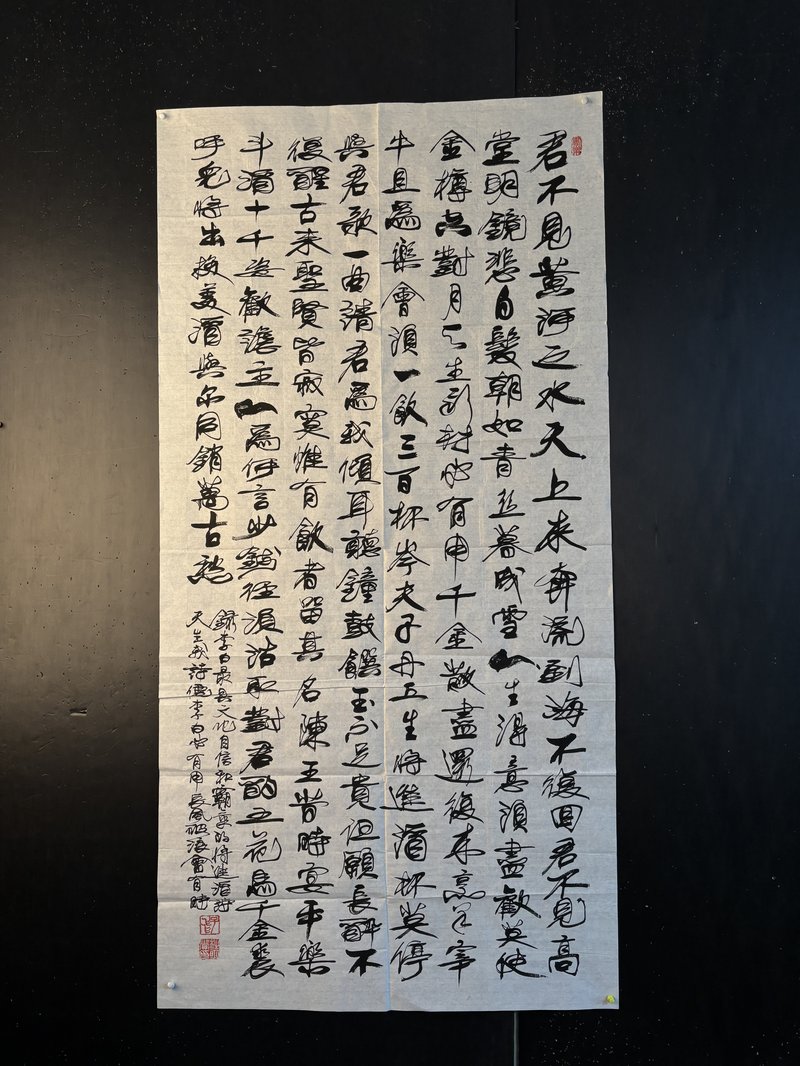 君不見黃河之水天上来奔流到海不復回君不見高
堂明鏡悲白髮朝如青絲暮成雪人生得意須盡歡莫使
金樽空對月天生我材必有用千金散盡還復来烹羊宰
牛且爲樂會須一飲三百杯岑夫子丹丘生將進酒杯莫停
與君歌一曲請君爲我傾耳聽鐘鼓饌玉不足貴但願長醉不
復醒古来聖賢皆寂寞惟有飲者留其名陳王昔時宴平樂
斗酒十千恣歡謔主人爲何言少錢徑須沽取對君酌五花馬千金裘
呼兒將出換美酒與尔同銷萬古愁
錄李白最具文化自信和霸氣的將進酒詩
天生我詩僊李白必有用長風破浪會有時